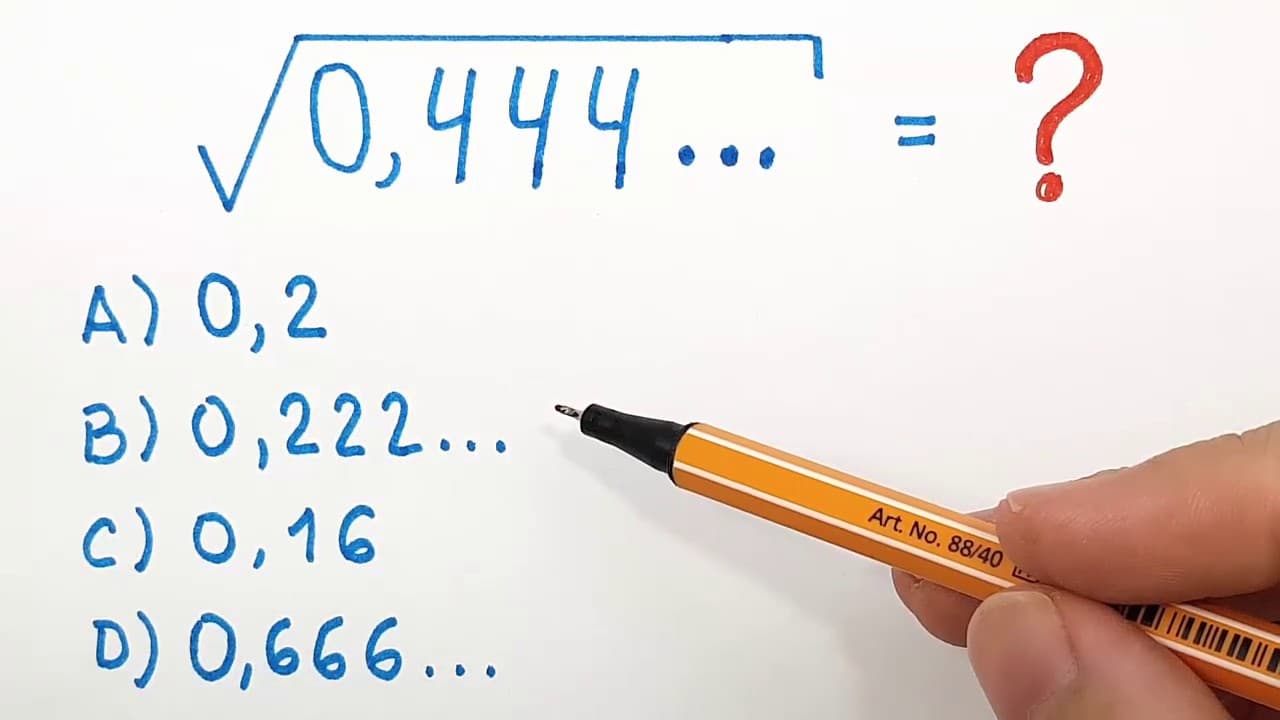 √0,444... = ?
A) 0,2
B) 0,222...
C) 0,16
D) 0,666...
Art. No. 88/40